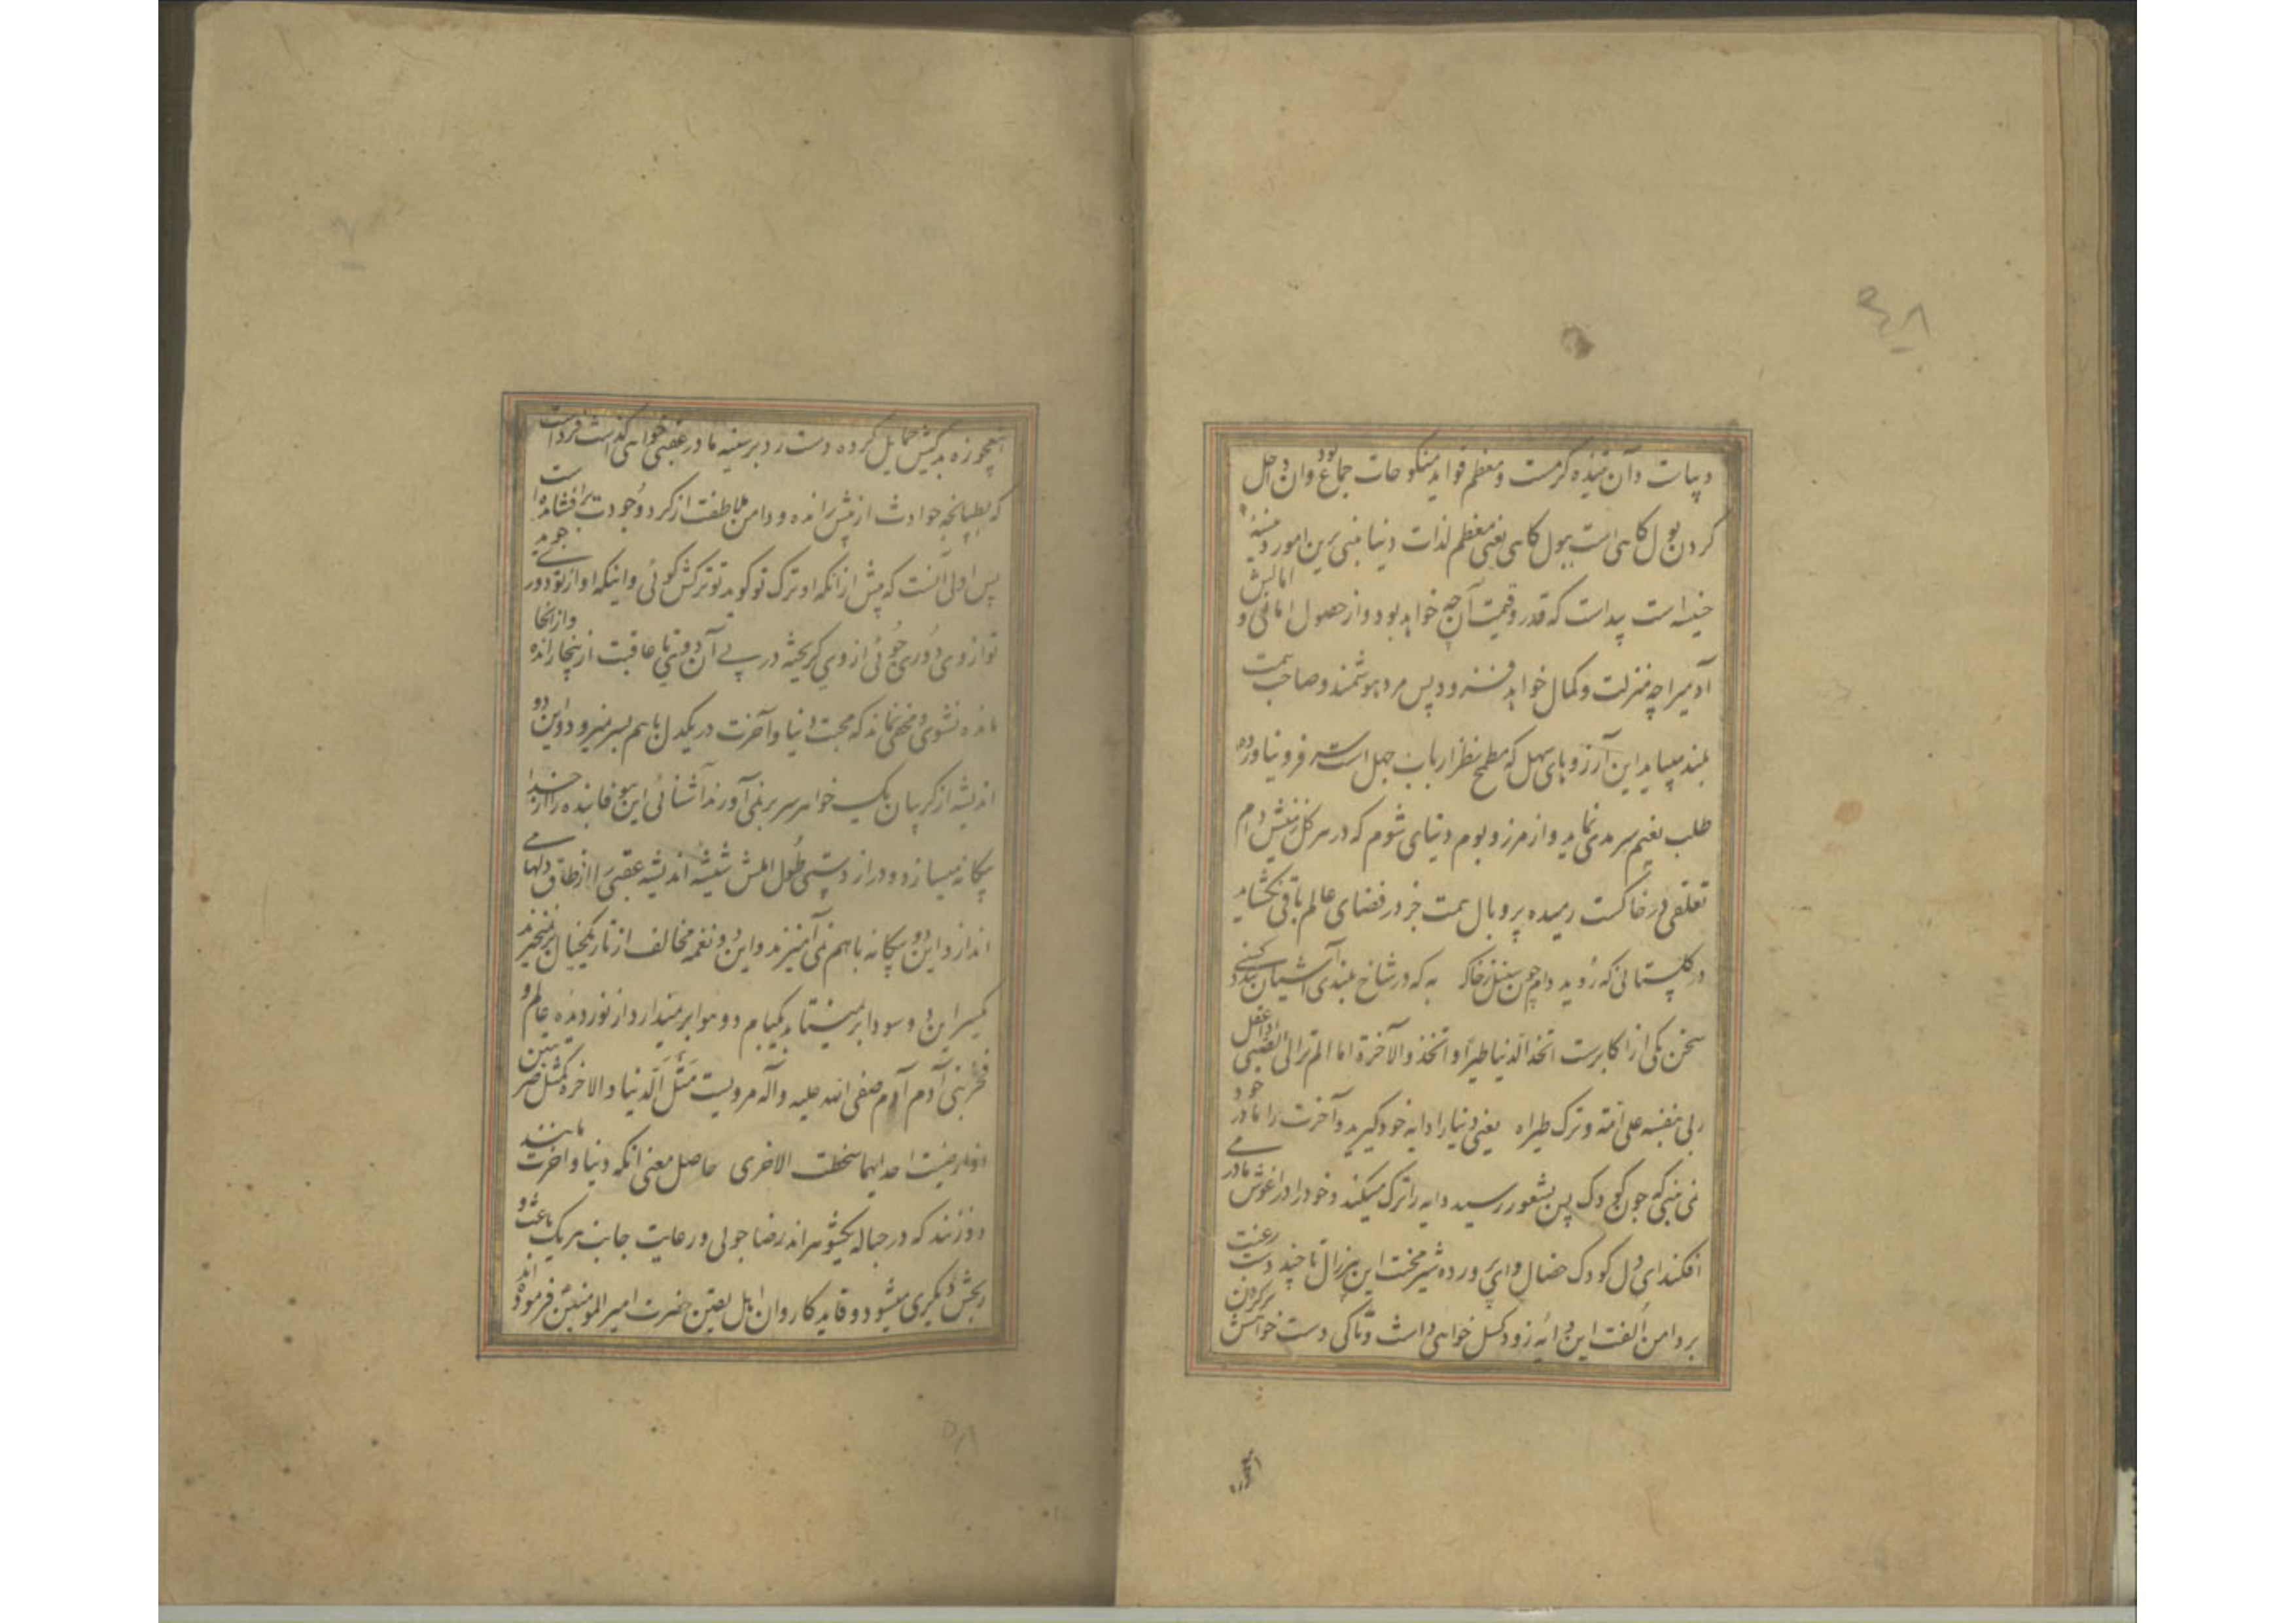 ۴۸
دیبات و آن تنیده کرمست و معظم فواید منکوحات جماع بود و آن داخل
کردن بول کاهی است ببول کاهی یعنی معظم لذات دنیا مبنی برین امور
خسیسه است پیداست که قدر و قیمت آن چه خواهد بود و از حصول امانی و امالش
آدمیرا چه منزلت و کمال خواهد فزود پس مرد هوشمند و صاحب همت
بلند میباید این آرزوهای سهل که مطمح نظر ارباب جهل است سر فرو نیاورده
طلب نعیم سرمدی نماید و از مرز و بوم دنیای شوم که در هر کل زمینش دام
تعلقی در خاکست رمیده پر و بال همت جز در فضای عالم باقی نکشاید
در کلستانی که روید دام چون سنبل ز خاک به که در شاخ بلندی آشیان بندد کسی
سخن یکی از اکابرست اتخذ الدنیا طیرا و اتخذ والاخرة اما الم تر الی الصبی اذا عقل
رمی بنفسه علی امه و ترک طیراه یعنی دنیا را دایه خود کیرید و آخرت را مادر خود
نمی بینی که چون کودک پس بشعور رسید دایه را ترک میکند و خود را در آغوش مادر می
افکند ای دل کودک خصال و ای پرورده شیر محنت این پیرزال تا چند دست رغبت
بر دامن الفت این دایه زود کسل خواهی داشت و تا کی دست خواهش برکردن
همچوزه بدکیش حمایل کرده دست رد بر سینه مادر عقبی خواهی کذاشت فرداست
که بطپانچه حوادث از پیش رانده و دامن ملاطفت از کرد وجودت برافشانده است
پس اولی آنست که پیش از آنکه او ترک تو کوید تو ترکش کوئی و اینکه او از تو دور
تو از وی دوری جوئی از وی کریخته در پی آن دونی تا عاقبت از ینجا رانده و از آنجا
مانده نشوی و مخفی نماند که محبت دنیا و آخرت در یکدل باهم بسر نمیرود و این دو
اندیشه از کریبان یک خواهر سر بر نمی آورند آشنائی این بیوفا بنده را از خدا
بیکانه میسازد و دراز دستی طول املش شیشه اندیشه عقبی را از طاق دلها می
اندازد این دو بیکانه باهم نمی آمیزند و این دو نغمه مخالف از تار یکخیال بر نمیخیزند
یکسر این دو سودا بر نمیتابد یکبام دو هوا بر نمیدارد از نور دیده عالم و
فخر بنی آدم آدم صفی الله علیه و آله مرویست مثل الدنیا والاخرة کمثل ضرتین
اذا رضیت احدیهما سخطت الاخری حاصل معنی آنکه دنیا و آخرت مانند
دو زنند که در حباله یکشوهراند رضا جوئی و رعایت جانب هر یک باعث
رنجش دیکری میشود و قاید کاروان اهل یقین حضرت امیر المومنین فرموده اند